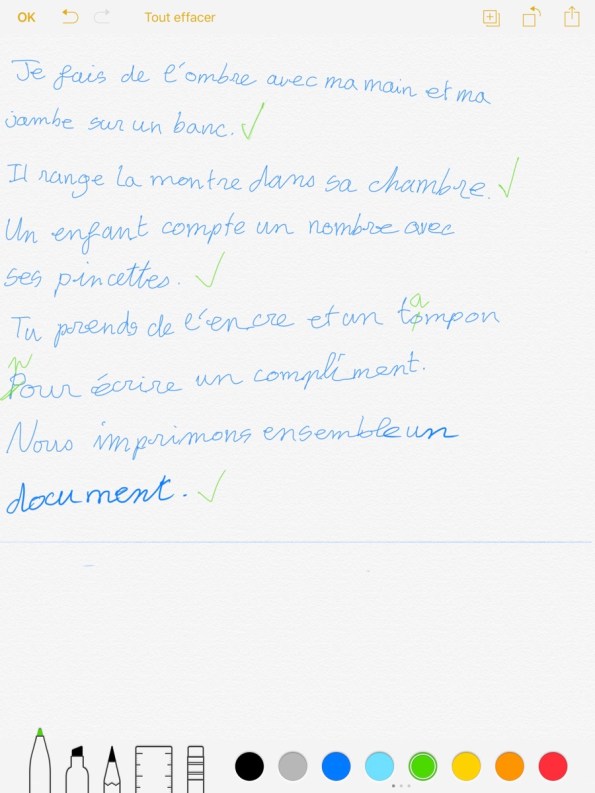 OK Tout effacer
Je fais de l'ombre avec ma main et ma
jambe sur un banc.
Il range la montre dans sa chambre.
Un enfant compte un nombre avec
ses pincettes.
a
Tu prends de l'encre et un tompon
p
Pour écrire un compliment.
Nous imprimons ensemble un
document.